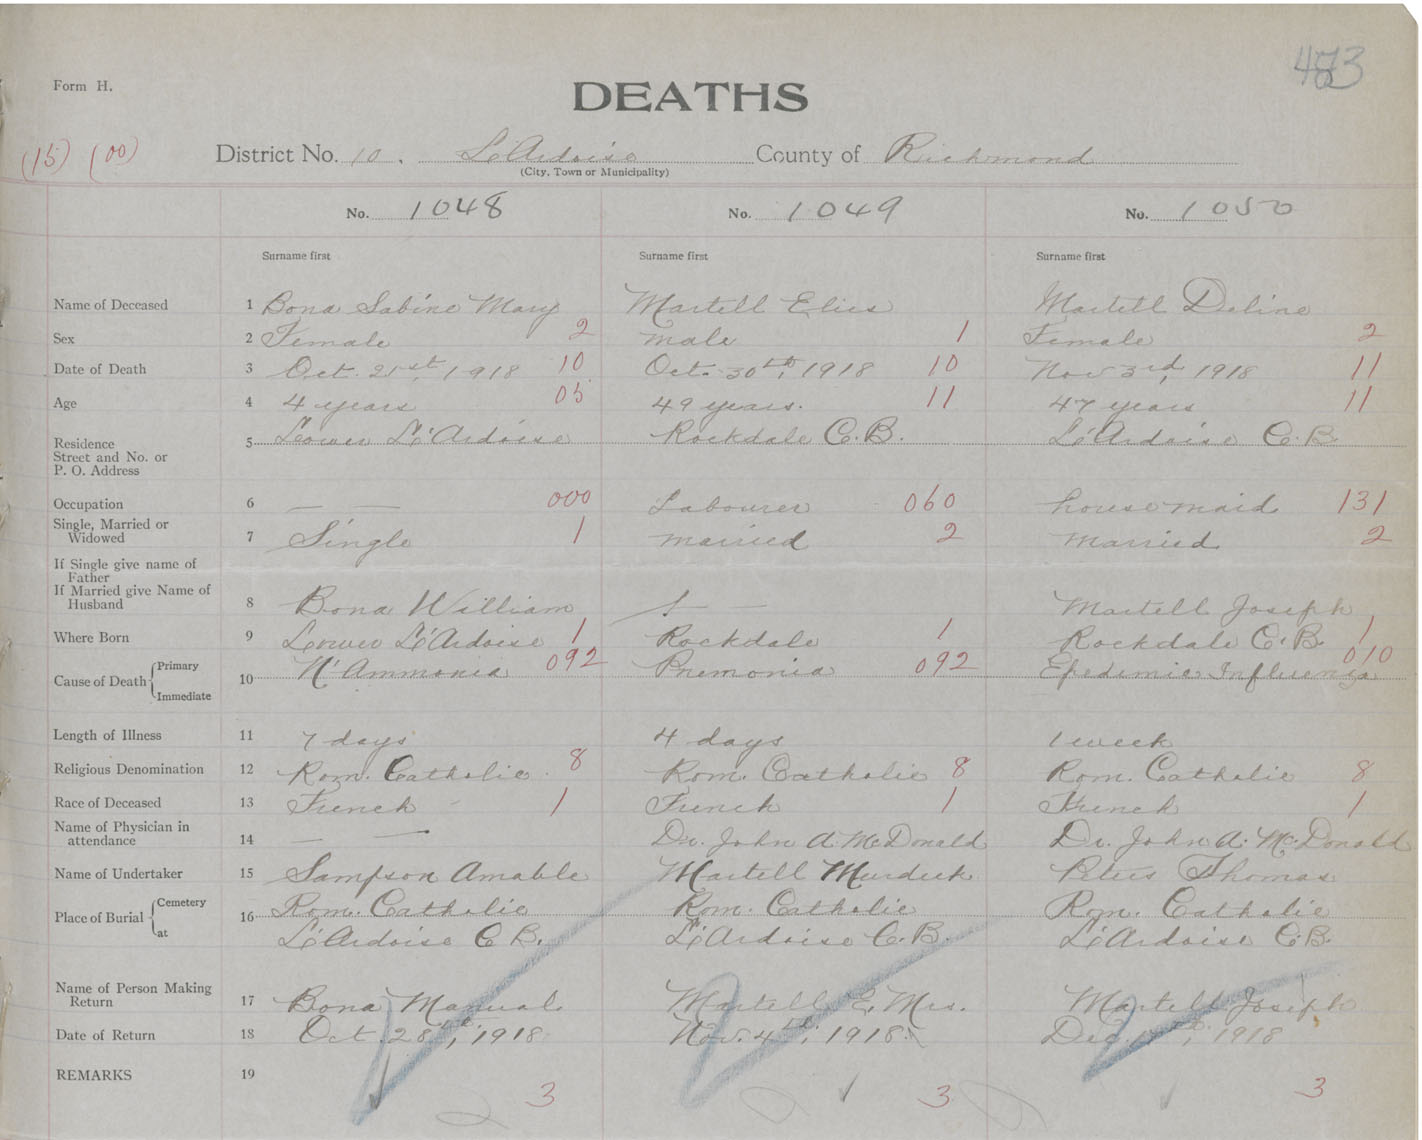 473
Form H.
DEATHS
(15) (00) District No. 10. L'Ardoise County of Richmond
(City, Town or Municipality)
No. 1048 No. 1049 No. 1050
Surname first Surname first Surname first
Name of Deceased 1 Bona Sabine Mary Martell Elies Martell Deline
Sex 2 Female 2 male 1 Female 2
Date of Death 3 Oct. 21st, 1918 10 Oct. 30th, 1918 10 Nov 3rd, 1918 11
Age 4 4 years 05 49 years. 11 47 years 11
Residence
Street and No. or
P. O. Address
5 Lower L'Ardoise Rockdale C.B. L'Ardoise C.B.
Occupation 6 — — 000 Labourer 060 housemaid 131
Single, Married or
Widowed
7 Single 1 married 2 married 2
If Single give name of
Father
If Married give Name of
Husband
8 Bona William — Martell Joseph
Where Born 9 Lower L'Ardoise 1 Rockdale 1 Rockdale C.B. 1
Cause of Death { Primary
Immediate
10 N'Ammonia 092 Pnemonia 092 Epedimic Influenza 010
Length of Illness 11 7 days 4 days 1 week
Religious Denomination 12 Rom. Catholic. 8 Rom. Catholic 8 Rom. Catholic 8
Race of Deceased 13 French 1 French 1 French 1
Name of Physician in
attendance
14 — — Dr. John A McDonald Dr. John A. McDonald
Name of Undertaker 15 Sampson Amable Martell Murdick Peters Thomas
Place of Burial { Cemetery
at
16 Rom. Catholic Rom. Catholic Rom. Catholic
L'Ardoise C B. L'Ardoise C.B. L'Ardoise C.B.
Name of Person Making
Return
17 Bona Manual. Martell E. Mrs. Martell Joseph
Date of Return 18 Oct. 28th, 1918 Nov. 4th, 1918. Dec. 1918
REMARKS 19
3 3 3